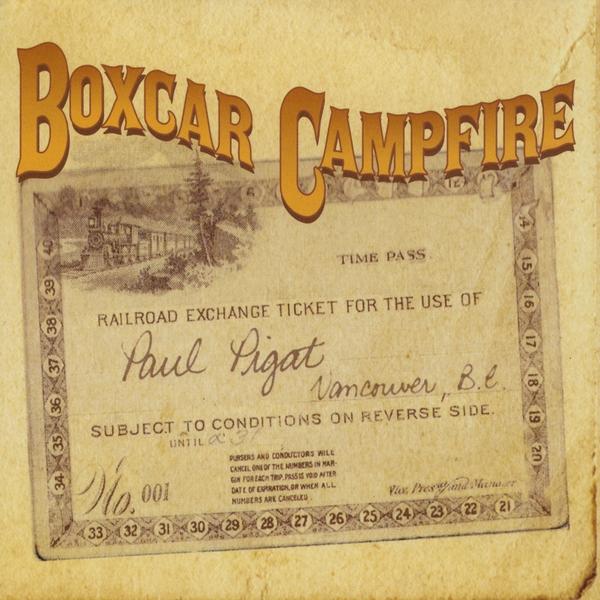 BOXCAR CAMPFIRE
TIME PASS
RAILROAD EXCHANGE TICKET FOR THE USE OF
Paul Pigat
Vancouver, B.C.
SUBJECT TO CONDITIONS ON REVERSE SIDE.
UNTIL
PURSERS AND CONDUCTORS WILL
CANCEL ONE OF THE NUMBERS IN MAR-
GIN FOR EACH TRIP. PASS IS VOID AFTER
DATE OF EXPIRATION, OR WHEN ALL
NUMBERS ARE CANCELED
No. 001
Vice Prest and Manager
12
14
15
16
17
18
19
20
40
39
38
37
36
35
34
33 32 31 30 29 28 27 26 25 24 23 22 21